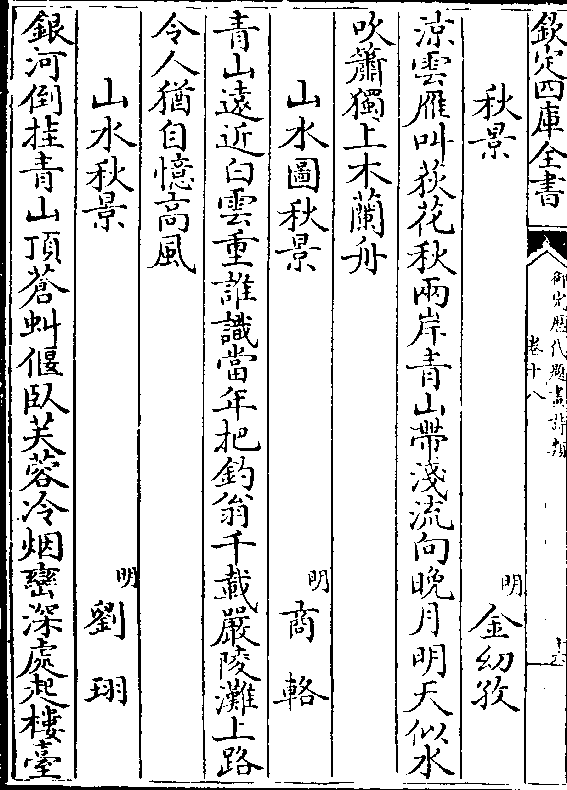 欽定四庫全書
御定歷代題畫詩類
卷十八
秋景
明
金幼孜
涼雲雁叫荻花秋兩岸青山帶淺流向晚月明天似水
吹簫獨上木蘭舟
山水圖秋景
明
商輅
青山遠近白雲重誰識當年把釣翁千載嚴陵灘上路
令人猶自憶高風
山水秋景
明
劉珝
銀河倒挂青山頂蒼虯偃臥芙蓉冷烟巒深處起樓臺